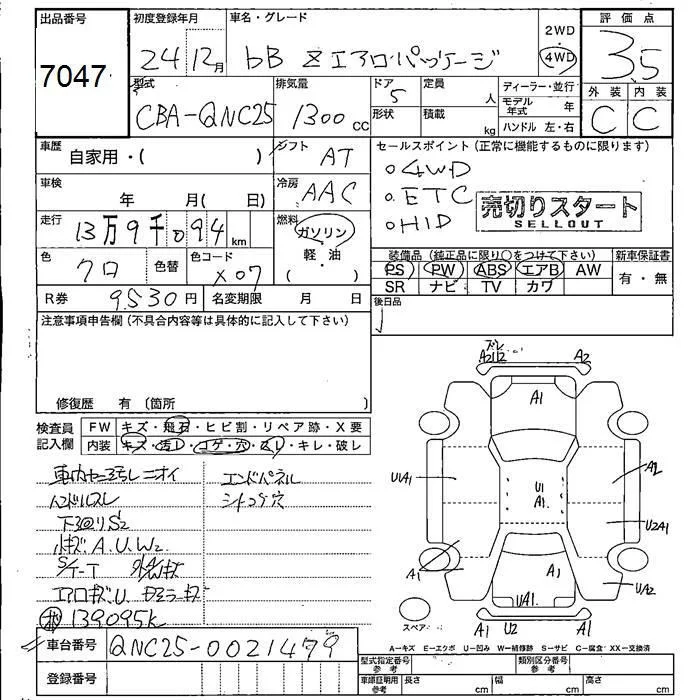 出品番号 7047
初度登録年月 24 12月
車名・グレード bB Zエアロパッケージ
2WD
4WD
評価点 3.5
外装 C 内装 C
型式 CBA-QNC25
排気量 1300 cc
ドア 5
形状
定員 人
積載 kg
ディーラー・並行
モデル年式 年
ハンドル 左・右
車歴 自家用・( )
シフト AT
車検 年 月( 日)
冷房 AAC
走行 13万9千094 km
燃料 ガソリン・軽・油
色 クロ 色替
色コード X07
R券 9530円
名変期限 月 日
セールスポイント(正常に機能するものに限ります)
○4WD
○ETC
○HID
売切りスタート
SELLOUT
装備品(純正品に限り○をつけて下さい)
PS PW ABS エアB AW
SR ナビ TV カワ
新車保証書
有・無
後日品
注意事項申告欄(不具合内容等は具体的に記入して下さい)
修復歴 有 〔箇所 〕
検査員記入欄
FW キズ・飛石・ヒビ割・リペア跡・X要
内装 キズ・汚レ・コゲ・穴・スレ・キレ・破レ
車内ヤニ汚レニオイ
ハンドルスレ
下回りS2
小キズ.A.U.W2
エアロキズ.U
139095k
エンドパネル
シートコゲ穴
車台番号 QNC25-0021479
登録番号
ズレ
A2U2
A2
A1
U1A1
U1
A1.
A2
U2A1
A1
A1
UA1.
UA2
スペア
A1 U2 A1
A-キズ E-エクボ U-凹み W-補修跡 S-サビ C-腐食 XX-交換済
型式指定番号 参考
類別区分番号 参考
車庫証明用 参考
長さ cm 幅 cm 高さ cm